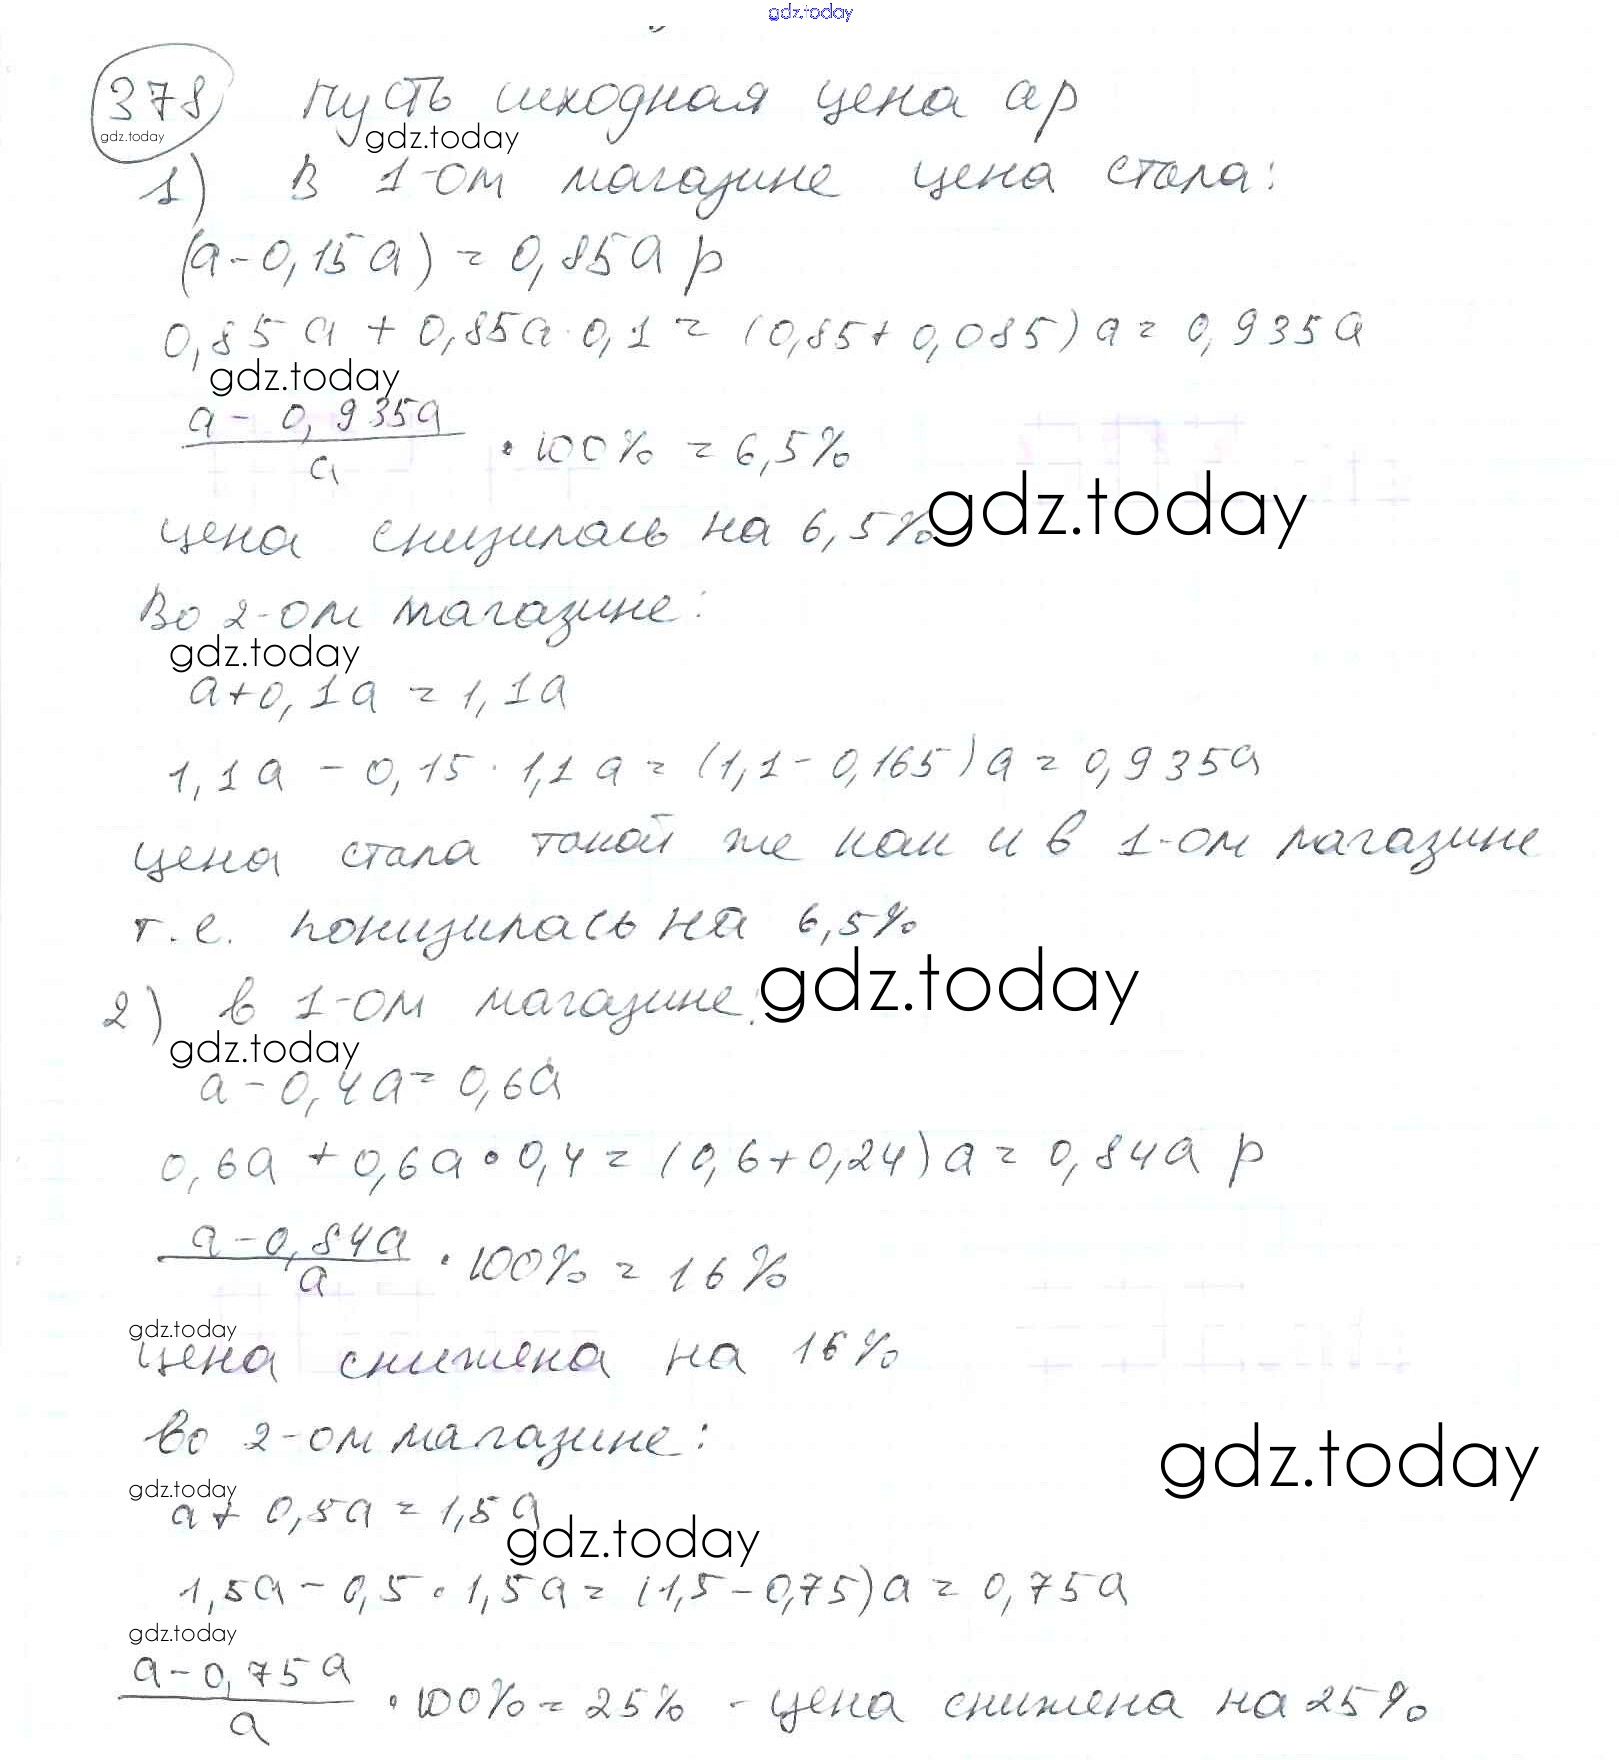 gdz.today
378 Пусть исходная цена a р
gdz.today gdz.today
1) В 1-ом магазине цена стала:
(a-0,15a) = 0,85a р
0,85a + 0,85a·0,1 = (0,85+0,085)a = 0,935a
gdz.today
a - 0,935a
a
· 100% = 6,5%
gdz.today
цена снизилась на 6,5%
Во 2-ом магазине:
gdz.today
a+0,1a = 1,1a
1,1a - 0,15 · 1,1a = (1,1 - 0,165)a = 0,935a
цена стала такой же как и в 1-ом магазине
т.е. понизилась на 6,5%
gdz.today
2) в 1-ом магазине:
gdz.today
a-0,4a = 0,6a
0,6a + 0,6a·0,4 = (0,6+0,24)a = 0,84a р
a-0,84a
a
· 100% = 16%
gdz.today
цена снижена на 16%
во 2-ом магазине:
gdz.today
gdz.today
a+ 0,5a = 1,5a
gdz.today
1,5a - 0,5·1,5a = (1,5-0,75)a = 0,75a
gdz.today
a-0,75a
a
· 100% = 25% - цена снижена на 25%